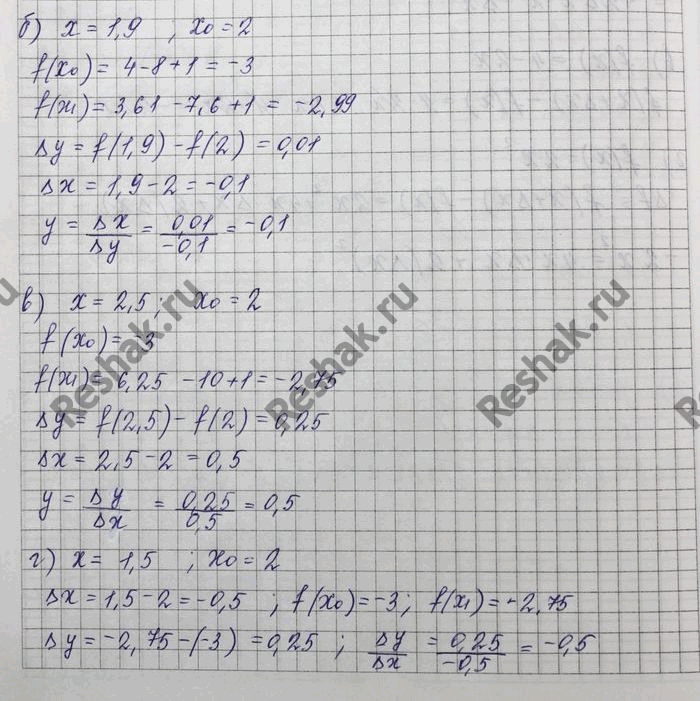 б) x = 1,9 , x0 = 2
f(x0) = 4-8+1 = -3
f(x1) = 3,61 - 7,6 + 1 = -2,99
Δy = f(1,9) - f(2) = 0,01
Δx = 1,9 - 2 = -0,1
y = Δx/Δy = 0,01/-0,1 = -0,1
в) x = 2,5; x0 = 2
f(x0) = -3
f(x1) = 6,25 - 10 + 1 = -2,75
Δy = f(2,5) - f(2) = 0,25
Δx = 2,5 - 2 = 0,5
y = Δy/Δx = 0,25/0,5 = 0,5
г) x = 1,5 ; x0 = 2
Δx = 1,5 - 2 = -0,5 ; f(x0) = -3; f(x1) = -2,75
Δy = -2,75 - (-3) = 0,25 ; Δy/Δx = 0,25/-0,5 = -0,5
Reshak.ru
Reshak.ru
Reshak.ru